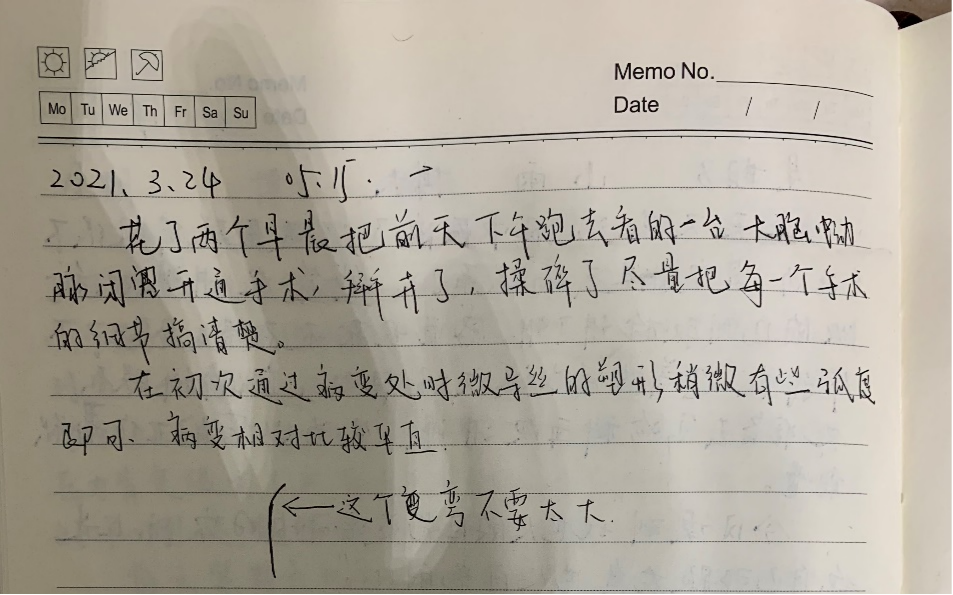 Memo No.
Mo Tu We Th Fr Sa Su
Date / /
2021、3、24 05:15. 一
花了两个早晨把前天下午跑去看的一台大脑中动
脉闭塞开通手术,掰开了,揉碎了尽量把每一个手术
的细节搞清楚。
在初次通过病变处时微导丝的塑形,稍微有些弧度
即可、病变相对比较平直
←这个弯不要太大.